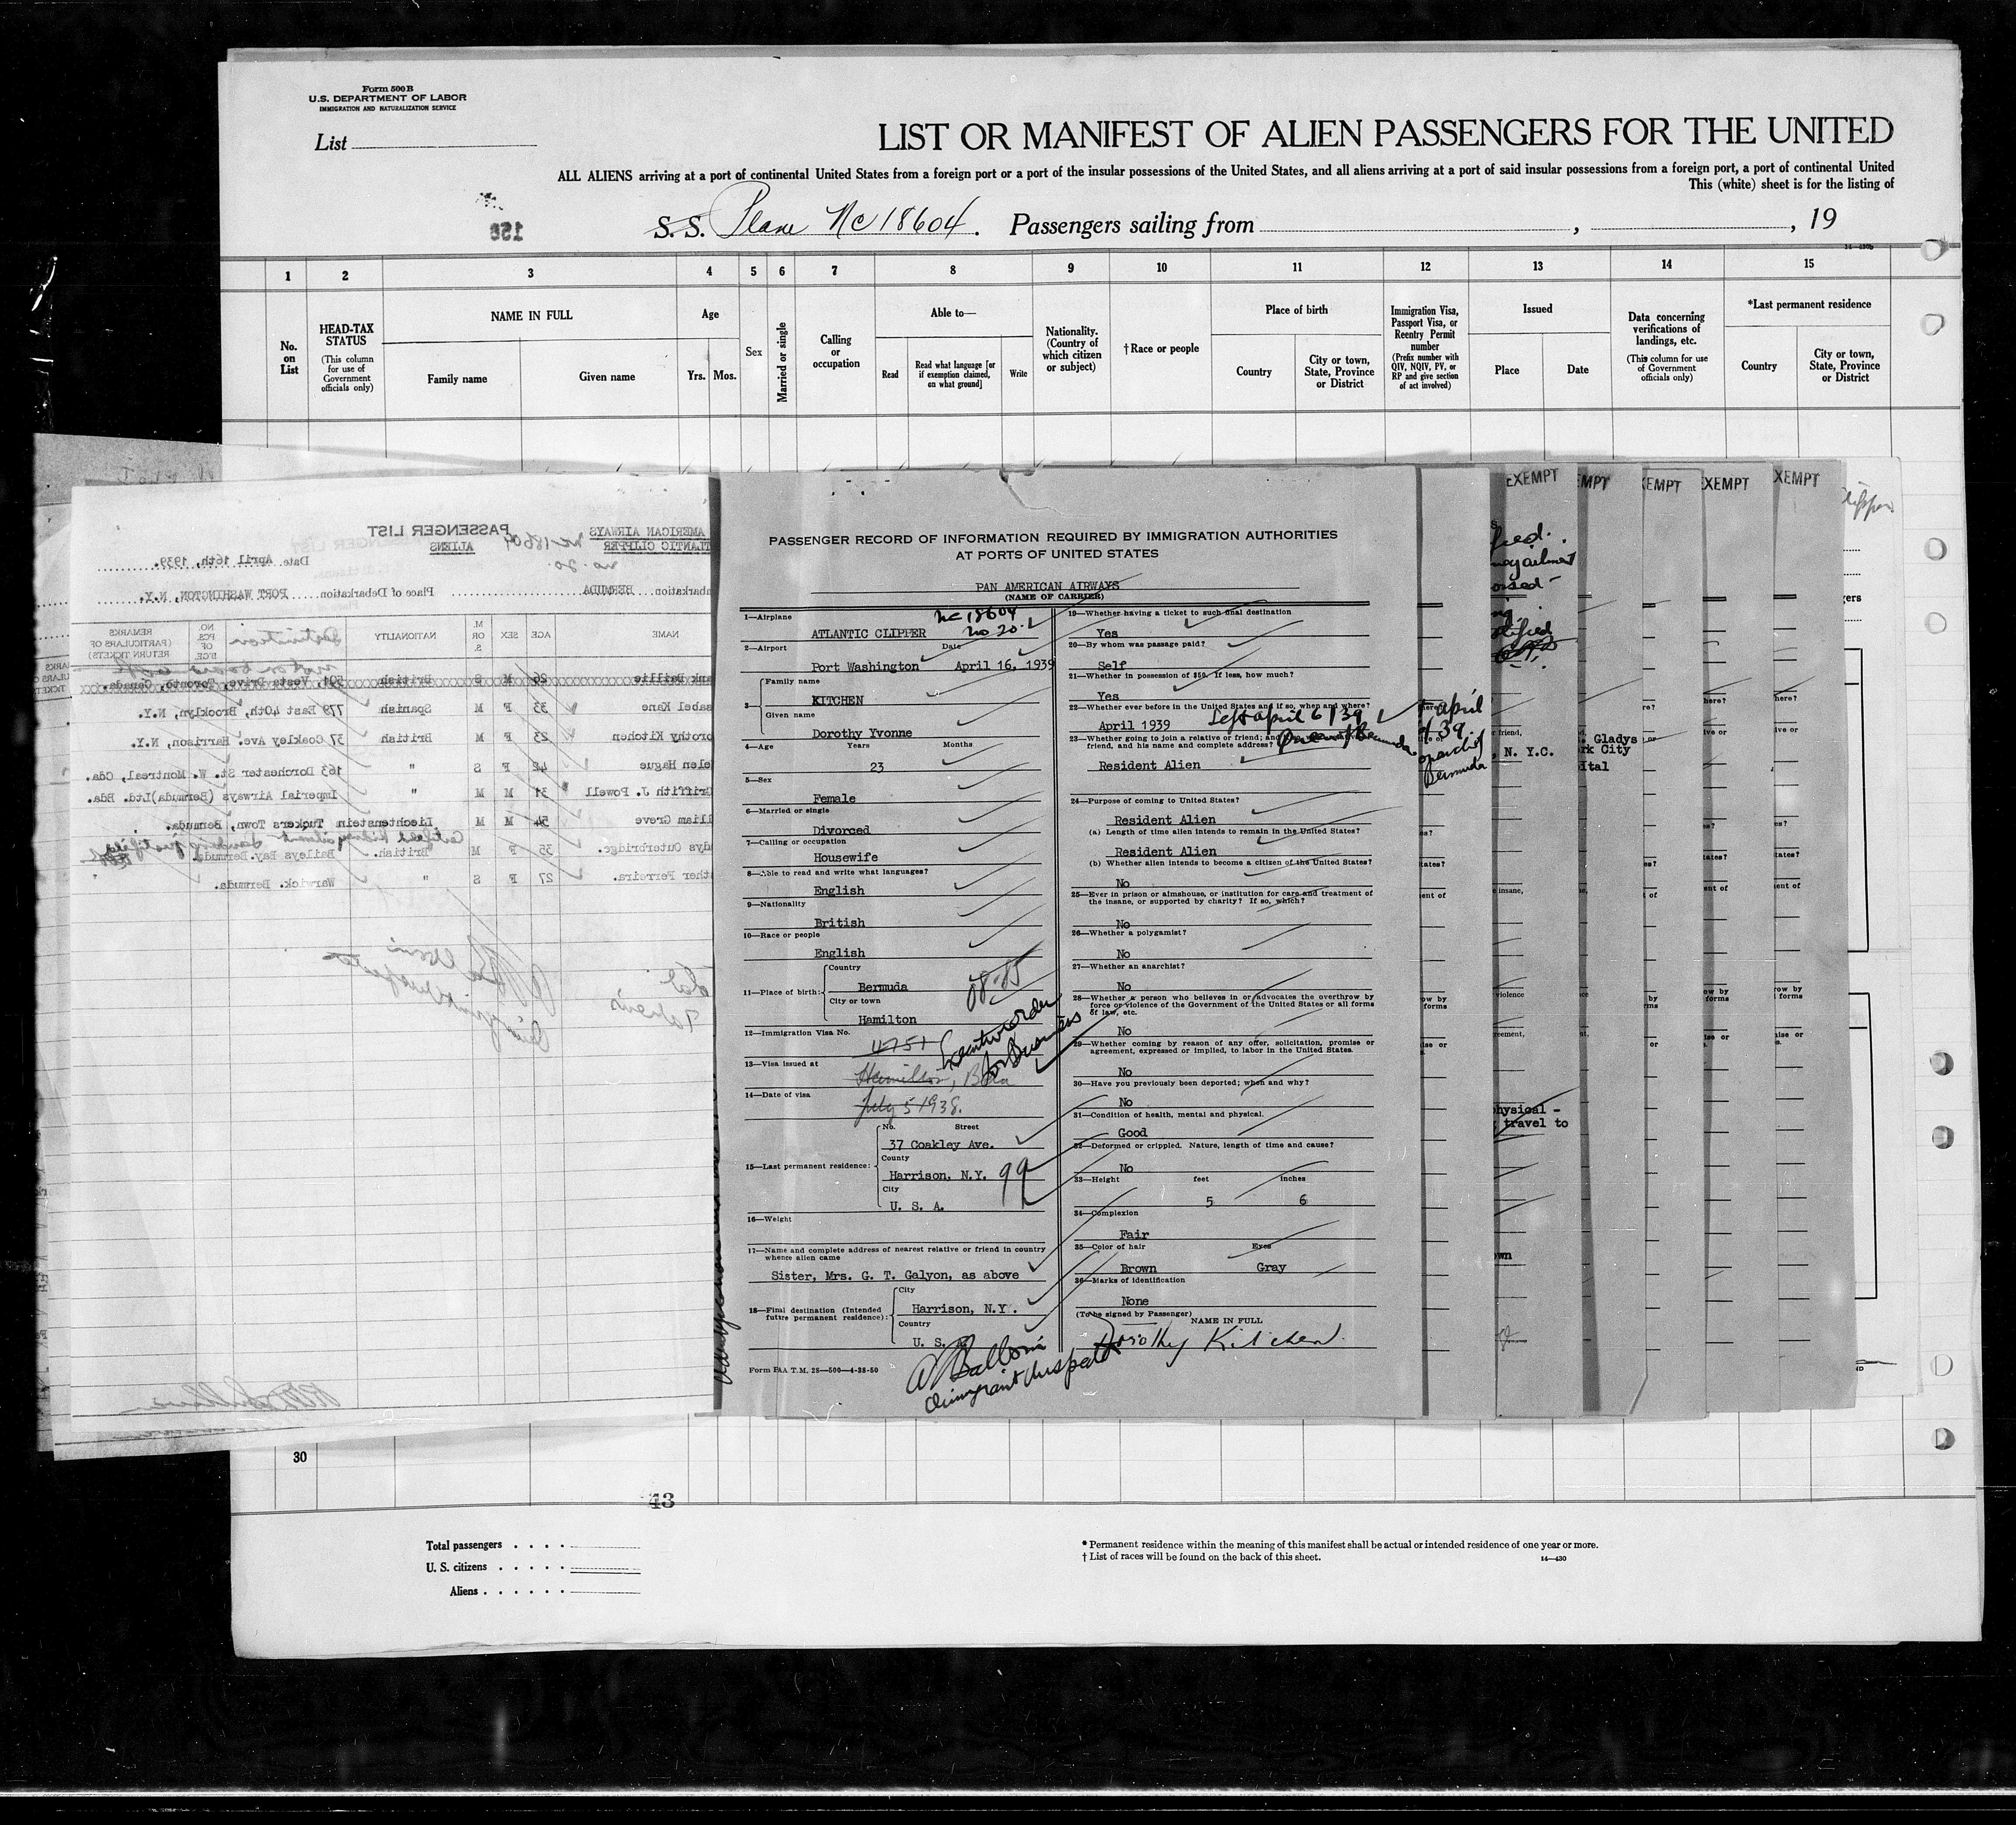 Form 500 B
U.S. DEPARTMENT OF LABOR
IMMIGRATION AND NATURALIZATION SERVICE
List
LIST OR MANIFEST OF ALIEN PASSENGERS FOR THE UNITED
ALL ALIENS arriving at a port of continental United States from a foreign port or a port of the insular possessions of the United States, and all aliens arriving at a port of said insular possessions from a foreign port, a port of continental United
This (white) sheet is for the listing of
150
S. S. Plane Nc 18604. Passengers sailing from , , 19
14—430b
1 2 3 4 5 6 7 8 9 10 11 12 13 14 15
No. on List
HEAD-TAX STATUS
(This column for use of Government officials only)
NAME IN FULL
Family name Given name
Age
Yrs. Mos.
Sex
Married or single
Calling or occupation
Able to—
Read
Read what language [or if exemption claimed, on what ground]
Write
Nationality. (Country of which citizen or subject)
† Race or people
Place of birth
Country
City or town, State, Province or District
Immigration Visa, Passport Visa, or Reentry Permit number
(Prefix number with QIV, NQIV, PV, or RP and give section of act involved)
Issued
Place Date
Data concerning verifications of landings, etc.
(This column for use of Government officials only)
*Last permanent residence
Country
City or town, State, Province or District
PASSENGER LIST
AMERICAN AIRWAYS
ALIENS
TLANTIC CLIPPER
Nc-18604
No. 20.
Date April 16th, 1939.
barkation BERMUDA Place of Debarkation PORT WASHINGTON, N.Y.
NAME AGE SEX M. OR S. NATIONALITY Destination NO. PCS. OF B'GE REMARKS (PARTICULARS OF RETURN TICKETS)
not on board
ank Baillie 26 M S British 501, Vesta Drive, Toronto, Canada.
sabel Kane 33 F M Spanish 779 East 40th, Brooklyn, N.Y.
orothy Kitchen 23 F M British 37 Coakley Ave. Harrison, N.Y.
elen Hague 42 F S " 163 Dorchester St. W. Montreal, Cda.
Griffith J. Powell 31 M M " Imperial Airways (Bermuda)Ltd. Bda.
lliam Greve 54 M M Liechtenstein Tuckers Town, Bermuda.
Certified kidney ailment landing justified
dys Outerbridge. 35 F M British. Baileys Bay. Bermuda.
ther Ferreira. 27 F S " Warwick. Bermuda.
PASSENGER RECORD OF INFORMATION REQUIRED BY IMMIGRATION AUTHORITIES
AT PORTS OF UNITED STATES
PAN AMERICAN AIRWAYS
(NAME OF CARRIER)
1—Airplane
Nc 18604
ATLANTIC CLIPPER No 20.
2—Airport Date
Port Washington April 16, 1939
3—
Family name
KITCHEN
Given name
Dorothy Yvonne
4—Age Years Months
23
5—Sex
Female
6—Married or single
Divorced
7—Calling or occupation
Housewife
8—Able to read and write what languages?
English
9—Nationality
British
10—Race or people
English
11—Place of birth:
Country
Bermuda
City or town
Hamilton
12—Immigration Visa No.
4751
Executive order
for Business
13—Visa issued at
Hamilton, Bda
14—Date of visa
July 5 1938.
15—Last permanent residence:
No. Street
37 Coakley Ave.
County
Harrison, N.Y. 99
City
U. S. A.
16—Weight
17—Name and complete address of nearest relative or friend in country whence alien came
Sister, Mrs. G. T. Galyon, as above
18—Final destination (Intended future permanent residence):
City
Harrison, N.Y.
Country
U. S. A.
Form PAA T.M. 28—500—4-38-50
19—Whether having a ticket to such final destination
Yes
20—By whom was passage paid?
Self
21—Whether in possession of $50. If less, how much?
Yes
22—Whether ever before in the United States and if so, when and where?
April 1939 Left april 6/39
23—Whether going to join a relative or friend; and
friend, and his name and complete address?
Resident Alien
24—Purpose of coming to United States?
Resident Alien
(a) Length of time alien intends to remain in the United States?
Resident Alien
(b) Whether alien intends to become a citizen of the United States?
No
25—Ever in prison or almshouse, or institution for care and treatment of the insane, or supported by charity? If so, which?
No
26—Whether a polygamist?
No
27—Whether an anarchist?
No
28—Whether a person who believes in or advocates the overthrow by force or violence of the Government of the United States or all forms of law, etc.
No
29—Whether coming by reason of any offer, solicitation, promise or agreement, expressed or implied, to labor in the United States.
No
30—Have you previously been deported; when and why?
No
31—Condition of health, mental and physical.
Good
32—Deformed or crippled. Nature, length of time and cause?
No
33—Height feet inches
5 6
34—Complexion
Fair
35—Color of hair Eyes
Brown Gray
36—Marks of identification
None
(To be signed by Passenger)
NAME IN FULL
Dorothy Kitchen
EXEMPT
EXEMPT
EXEMPT
, N. Y.C.
. Gladys
rk City
ital
april
Bermuda
physical -
travel to
30
43
Total passengers
U. S. citizens
Aliens
* Permanent residence within the meaning of this manifest shall be actual or intended residence of one year or more.
† List of races will be found on the back of this sheet.
14—430